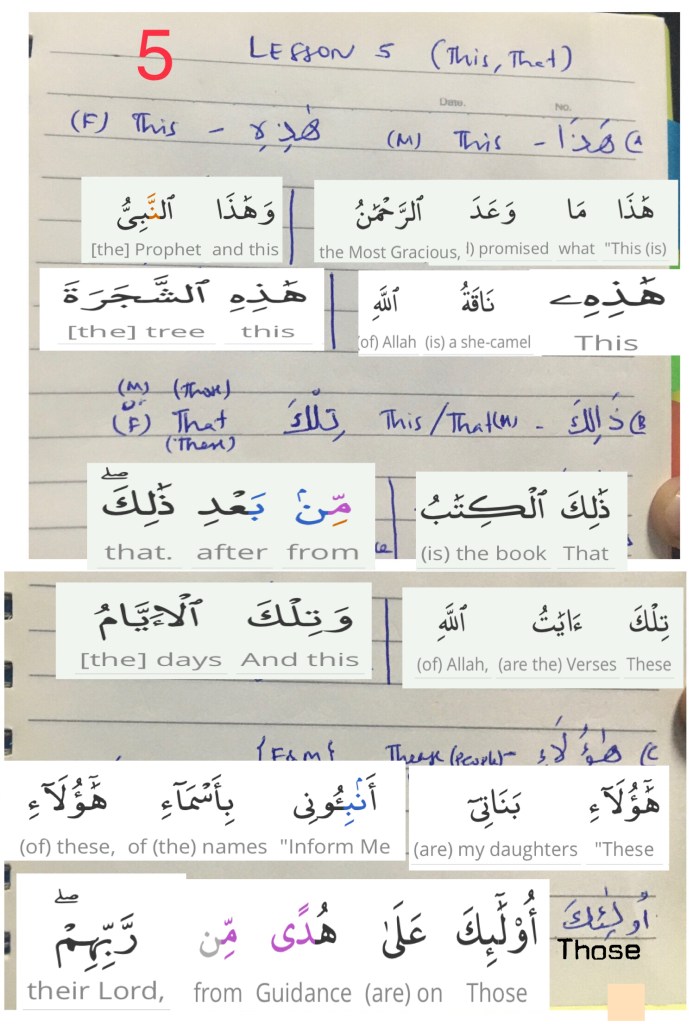 5
LESSON 5 (This, That)
Date. No.
A) هٰذَا - This (M) هٰذِهِ - This (F)
هَٰذَا مَا وَعَدَ ٱلرَّحْمَٰنُ
"This (is) what l) promised the Most Gracious,
وَهَٰذَا ٱلنَّبِىُّ
and this [the] Prophet
هَٰذِهِۦ نَاقَةُ ٱللَّهِ
This (is) a she-camel (of) Allah
هَٰذِهِ ٱلشَّجَرَةَ
this [the] tree
B) ذَالِكَ - This/That(M) تِلْكَ That (F)
(M) (Those)
or
(These)
ذَٰلِكَ ٱلْكِتَٰبُ
That (is) the book
مِّنۢ بَعْدِ ذَٰلِكَ ۖ
from after that.
تِلْكَ ءَايَٰتُ ٱللَّهِ
These (are the) Verses (of) Allah,
وَتِلْكَ ٱلْأَيَّامُ
And this [the] days
C) هٰؤُلَاءِ - These (People) {F&M}
هَٰٓؤُلَآءِ بَنَاتِىٓ
"These (are) my daughters
أَنۢبِـُٔونِى بِأَسْمَآءِ هَٰٓؤُلَآءِ
"Inform Me of (the) names (of) these,
أُولٰئِكَ
Those
أُو۟لَٰٓئِكَ عَلَىٰ هُدًى مِّن رَّبِّهِمْ ۖ
Those (are) on Guidance from their Lord,